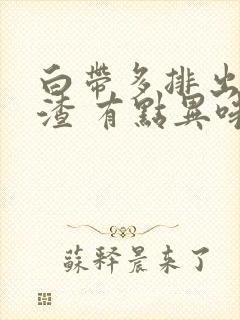 白帶多排出
渣 有點異味
蘇釋晨来了